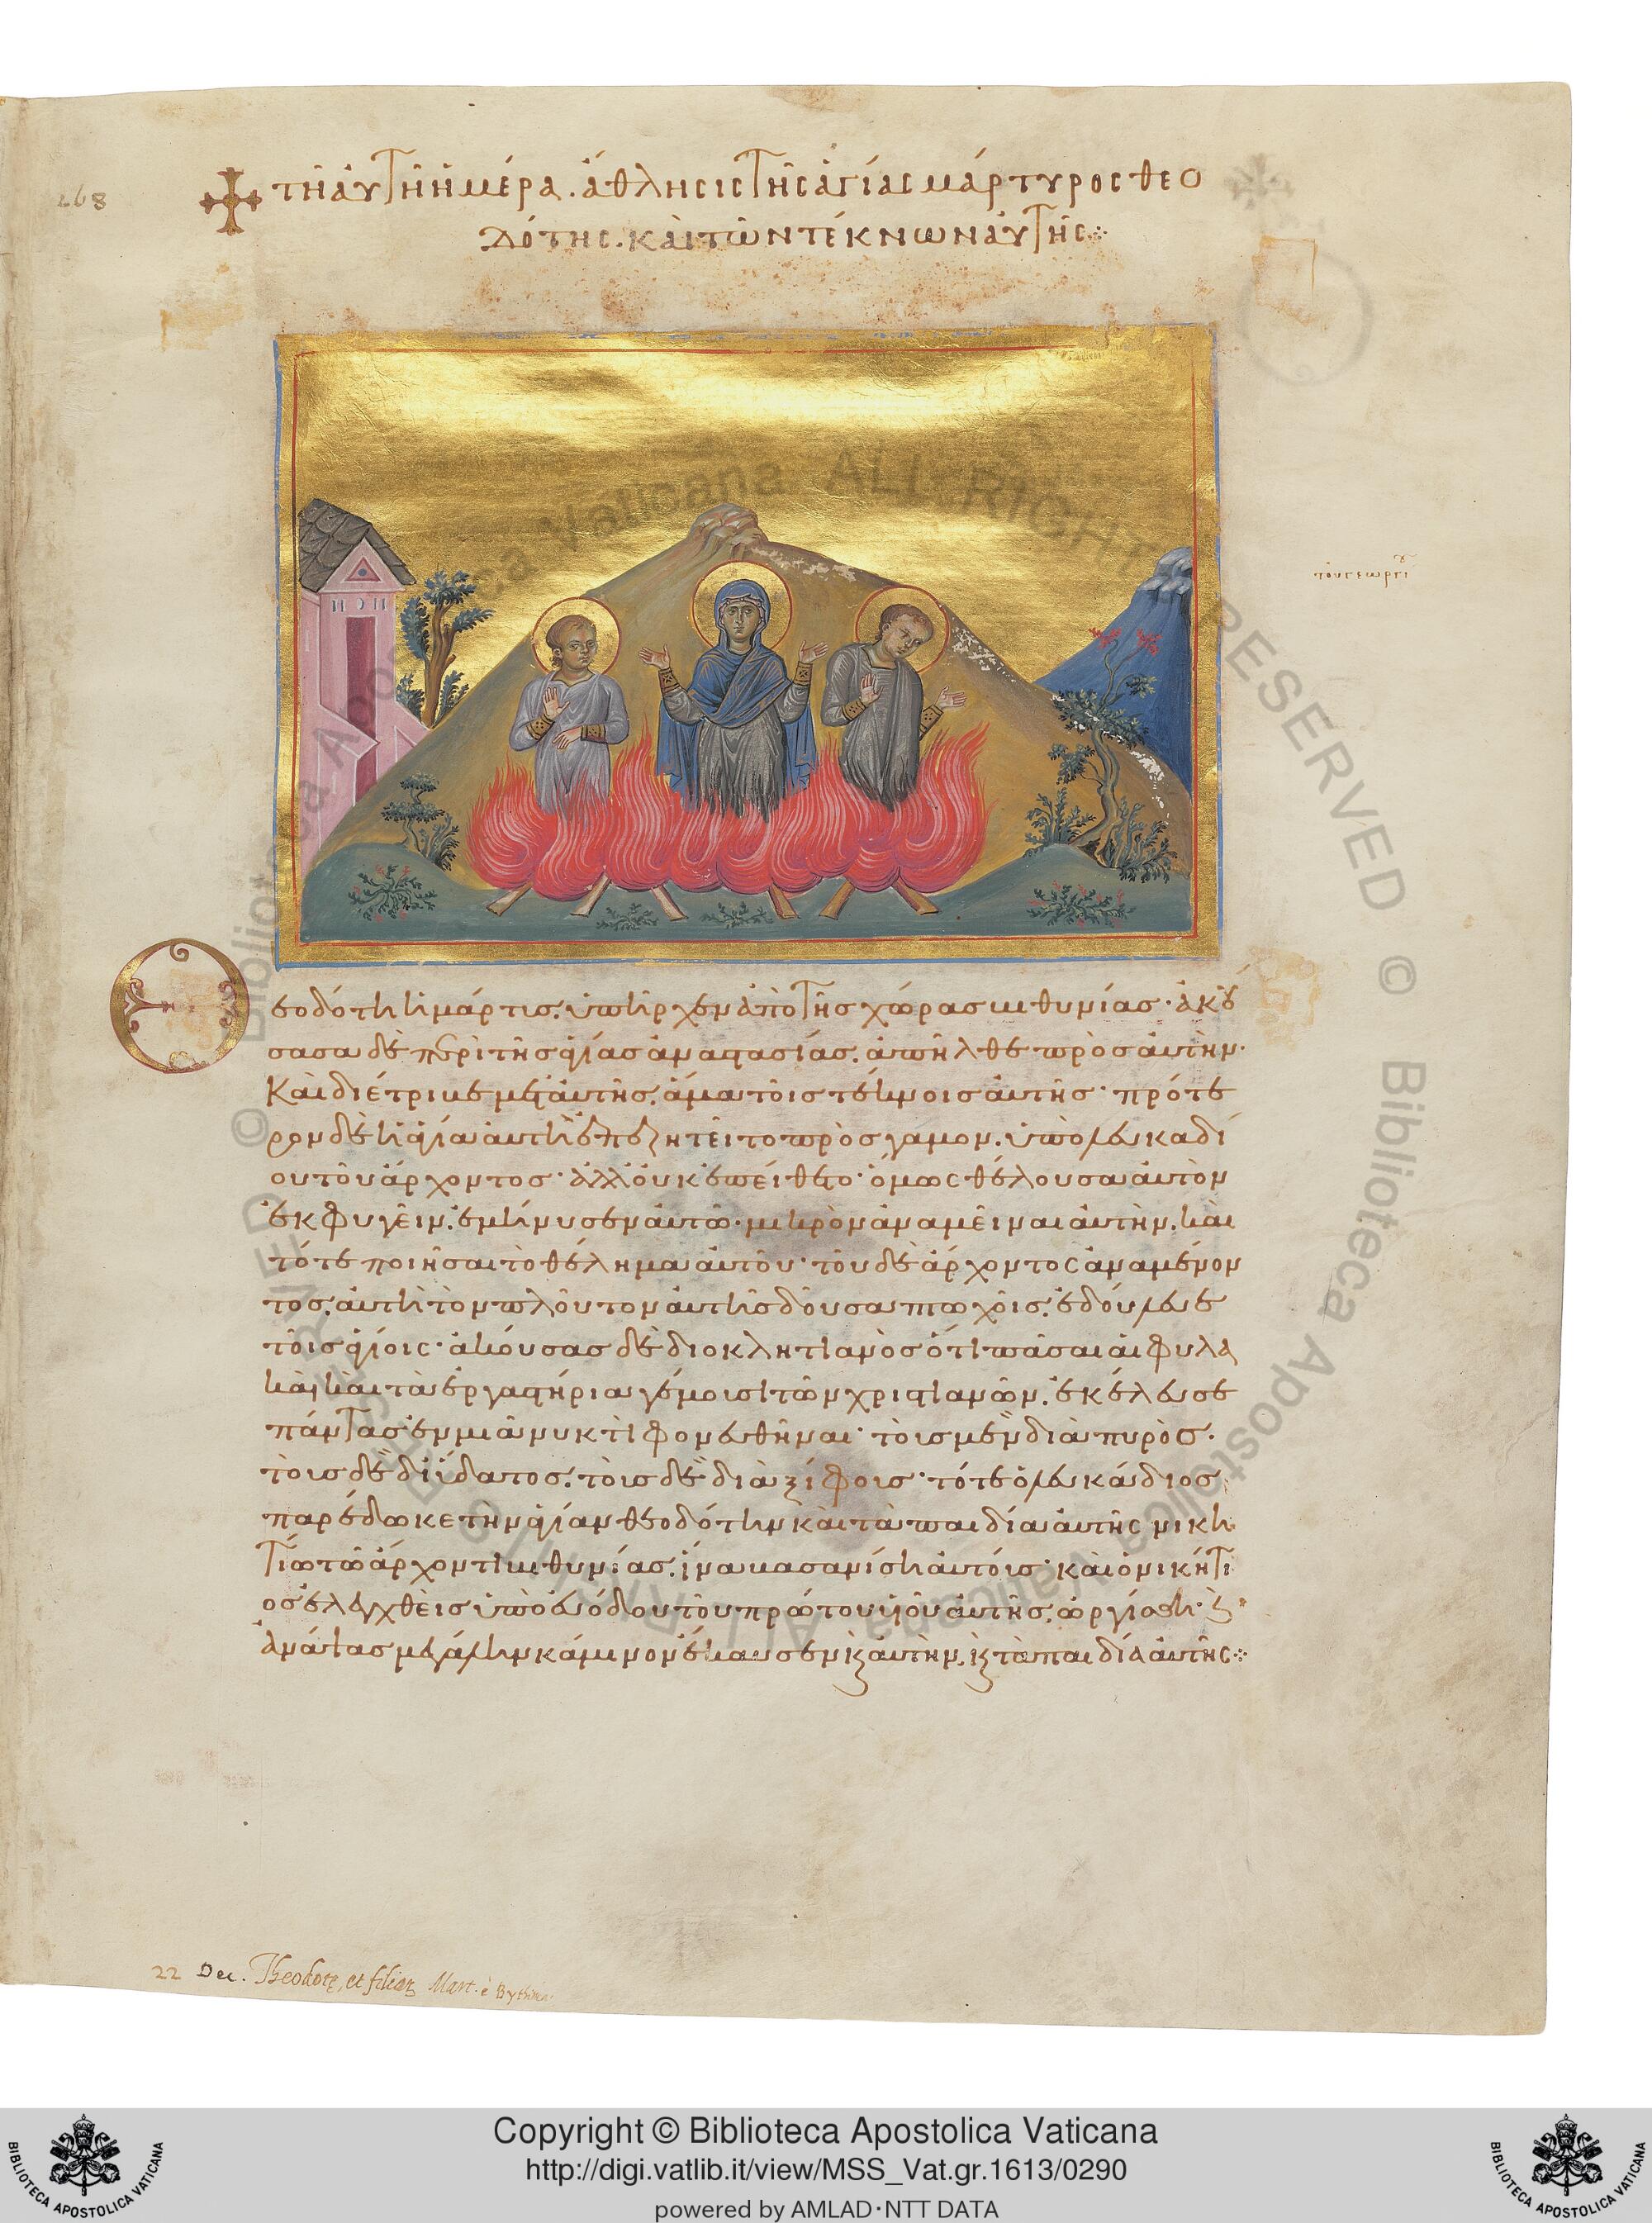 268
τῆ ἀυτῆ ἡμέρα. ἄθλησις τῆς ἁγίας μάρτυρος θεο
δότης. καὶ τῶν τέκνων ἀυτῆς⁘
τοῦ γεωργί
Θεοδότη ἡ μάρτυς, ὑπῆρχεν ἀπὸ τῆς χώρας βιθυνίας· ἀκού
σασα δὲ περὶ τῆς ἁγίας ἀναστασίας, ἀπῆλθε πρὸς ἀυτήν·
Καὶ διέτριβε μετ' ἀυτῆς, ἅμα τοῖς τέκνοις ἀυτῆς· πρότε
ρον δὲ ἡ ἁγία ἀυτὴ ἐπεζητεῖτο πρὸς γάμον, ὑπὸ λευκαδί
ου τοῦ ἄρχοντος· ἀλλ' οὐκ ἐπείθετο· ὅμως θέλουσα ἀυτὸν
ἐκφυγεῖν, ἐμήνυσεν ἀυτῶ· μικρὸν ἀναμεῖναι ἀυτὴν, καὶ
τότε ποιῆσαι τὸ θέλημα ἀυτοῦ· τοῦ δὲ ἄρχοντος ἀναμένον
τος, ἀυτὴ τὸν πλοῦτον ἀυτῆς δοῦσα πτωχοῖς, ἐδούλευε
τοῖς ἁγίοις· ἀκούσας δὲ διοκλητιανὸς ὅτι πᾶσαι αἱ φυλα
καὶ, καὶ τὰ ἐργαστήρια γέμουσι τῶν χριστιανῶν, ἐκέλευσε
πάντας ἐν μιᾶ νυκτὶ φονευθῆναι· τοὺς μὲν διὰ πυρός·
τοὺς δὲ δι' ὕδατος, τοὺς δὲ διὰ ξίφους· τότε ὁ λευκάδιος
παρέδωκε τὴν ἁγίαν θεοδότην καὶ τὰ παιδία ἀυτῆς νικη
τίω τῶ ἄρχοντι βιθυνίας, ἵνα βασανίση ἀυτούς· καὶ ὁ νικήτι
ος ἐλεγχθεὶς ὑπὸ ἐυόδου τοῦ πρώτου υἱοῦ ἀυτῆς, ὠργίσθη· ϗ
ἀνάψας μεγάλην κάμινον ἔκαυσεν ϗ ἀυτὴν, ϗ τὰ παιδία ἀυτῆς⁘
22 Dec. Theodotę, et filior. Mart. è Bythinia.
Copyright © Biblioteca Apostolica Vaticana
http://digi.vatlib.it/view/MSS_Vat.gr.1613/0290
powered by AMLAD·NTT DATA
BIBLIOTECA APOSTOLICA VATICANA
BIBLIOTECA APOSTOLICA VATICANA
© Biblioteca Apostolica Vaticana ALL RIGHTS RESERVED © Biblioteca Apostolica Vaticana ALL RIGHTS RESERVED